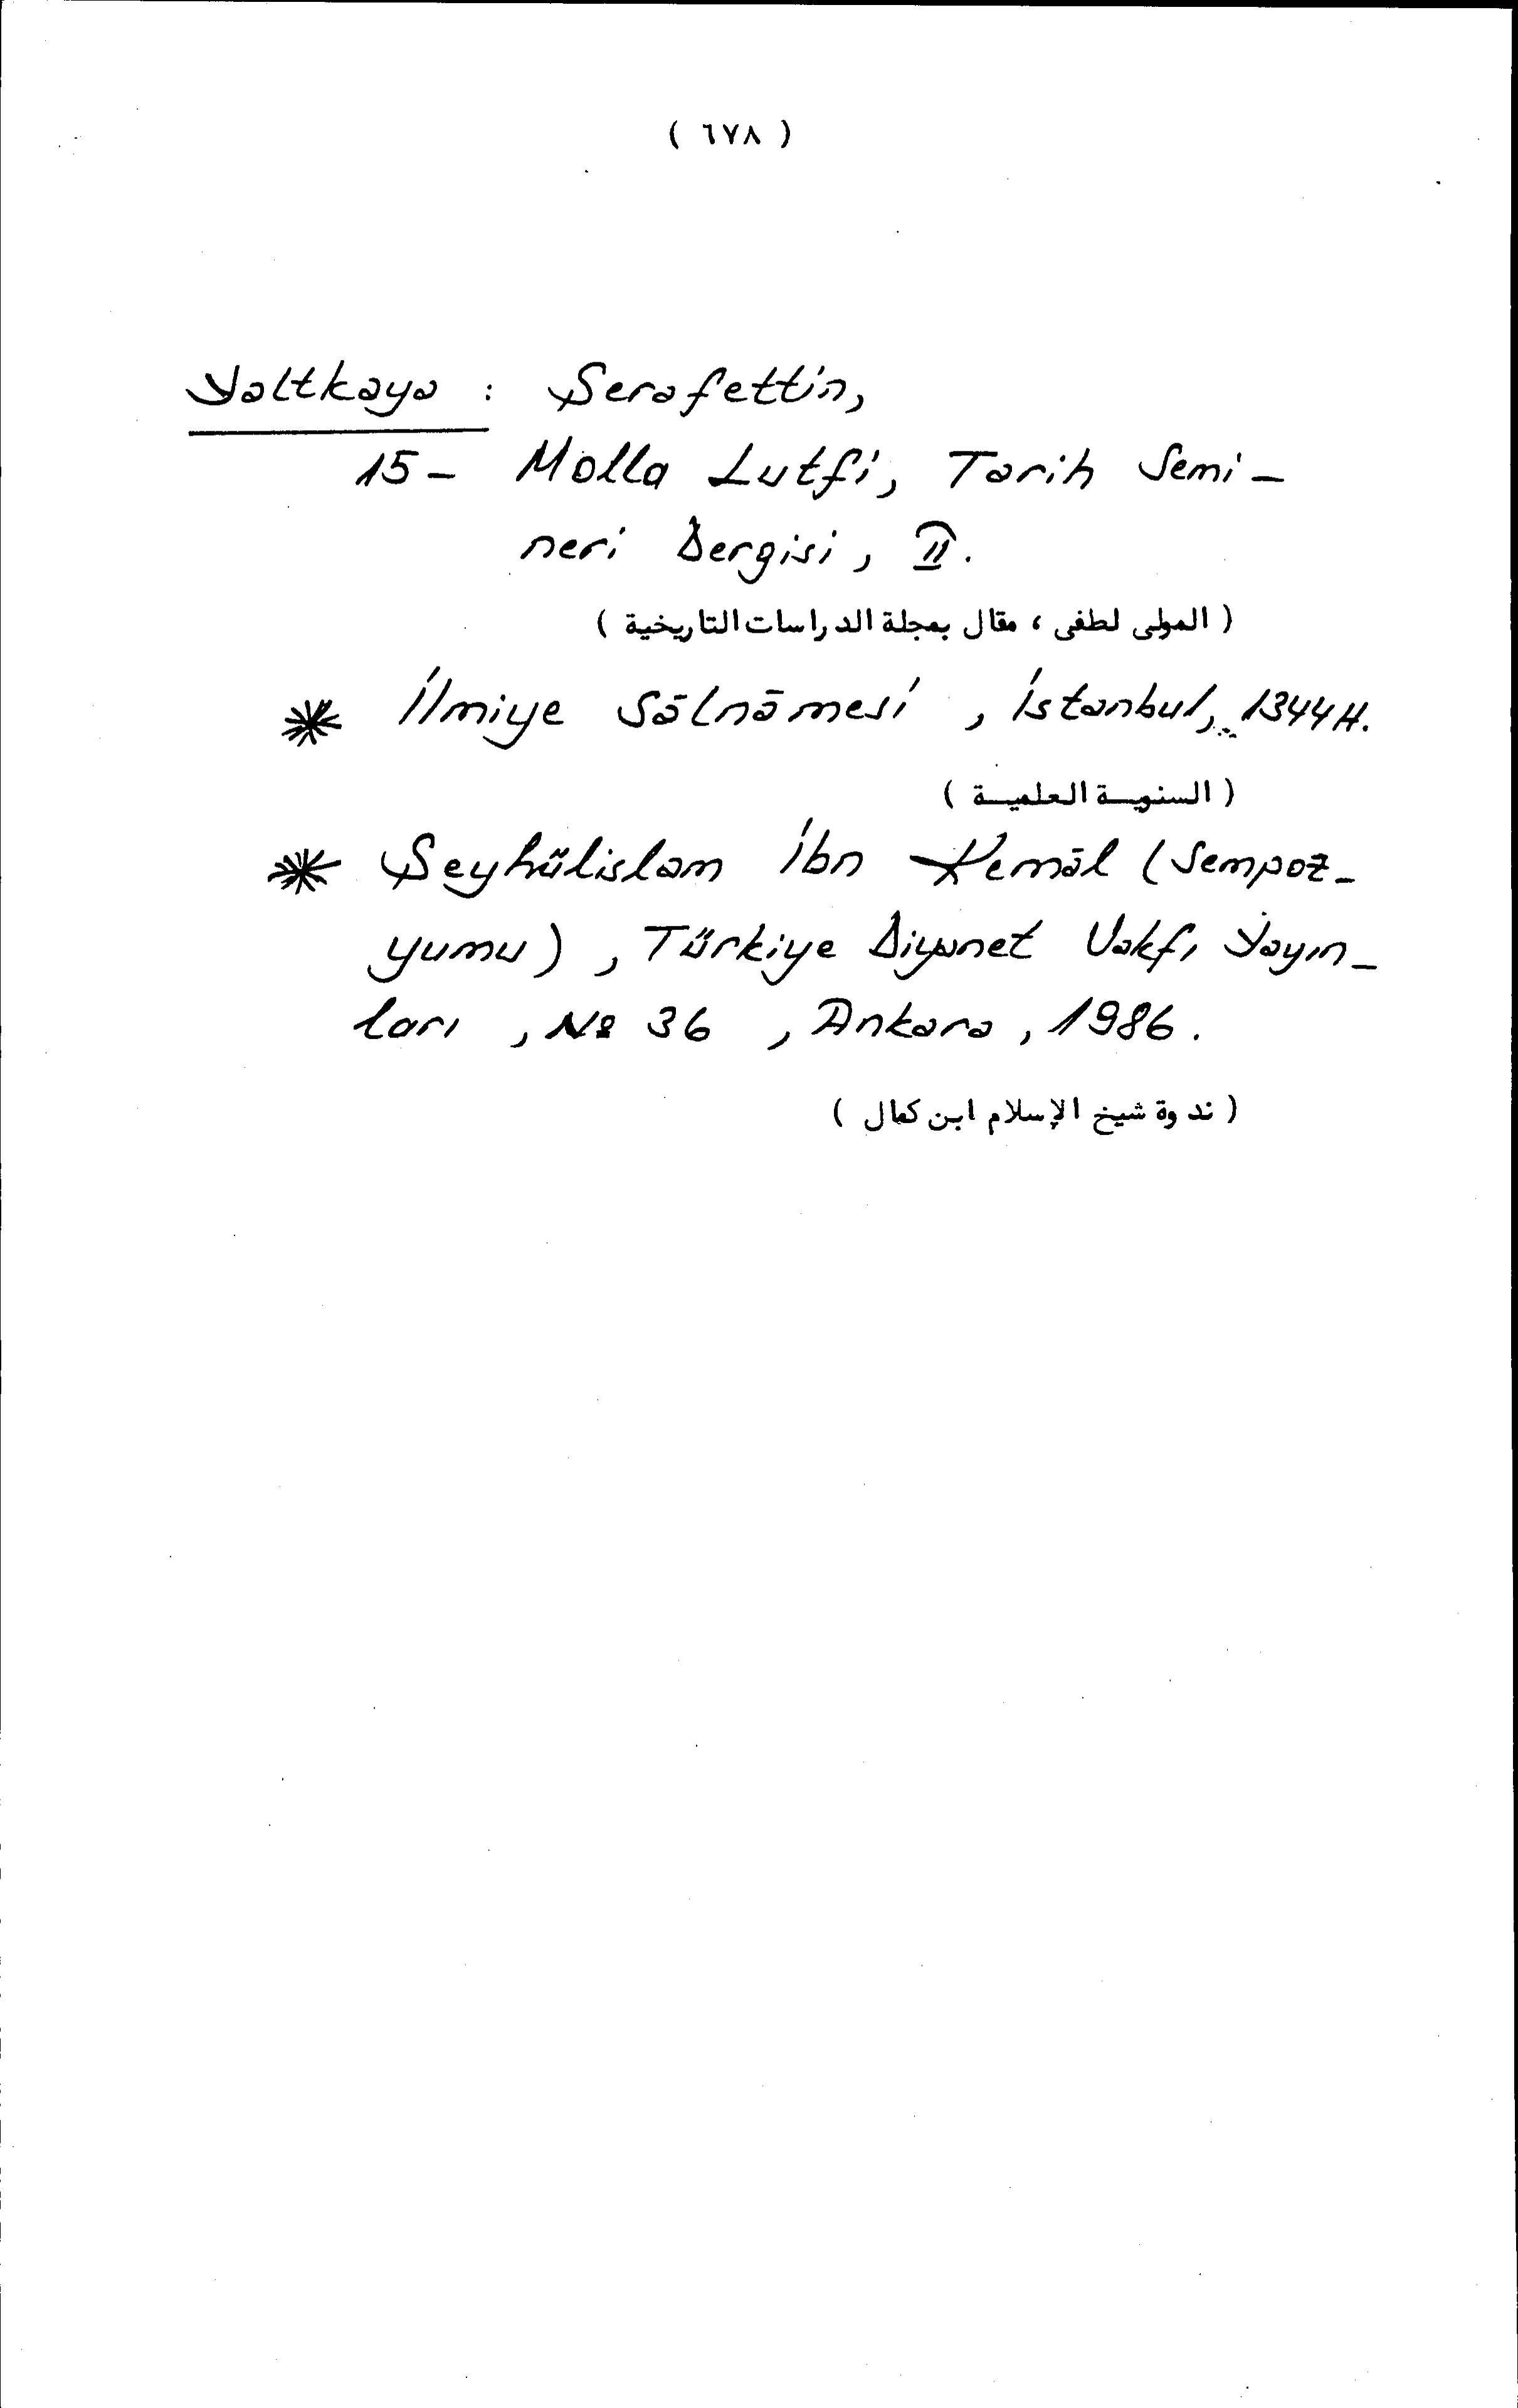 ( ٦٧٨ )
Yaltkaya : Şerafettin,
15- Molla Lutfi, Tarih Semi-
neri Dergisi, II.
( المولى لطفى ، مقال بمجلة الدراسات التاريخية )
* İlmiye Sālnāmesi , İstanbul, 1344 H.
( السنويـة العلميـة )
* Şeyhülislam İbn Kemāl (Sempoz-
yumu) , Türkiye Diyanet Vakfı Yayın-
ları , № 36 , Ankara , 1986 .
( ندوة شيخ الإسلام ابن كمال )